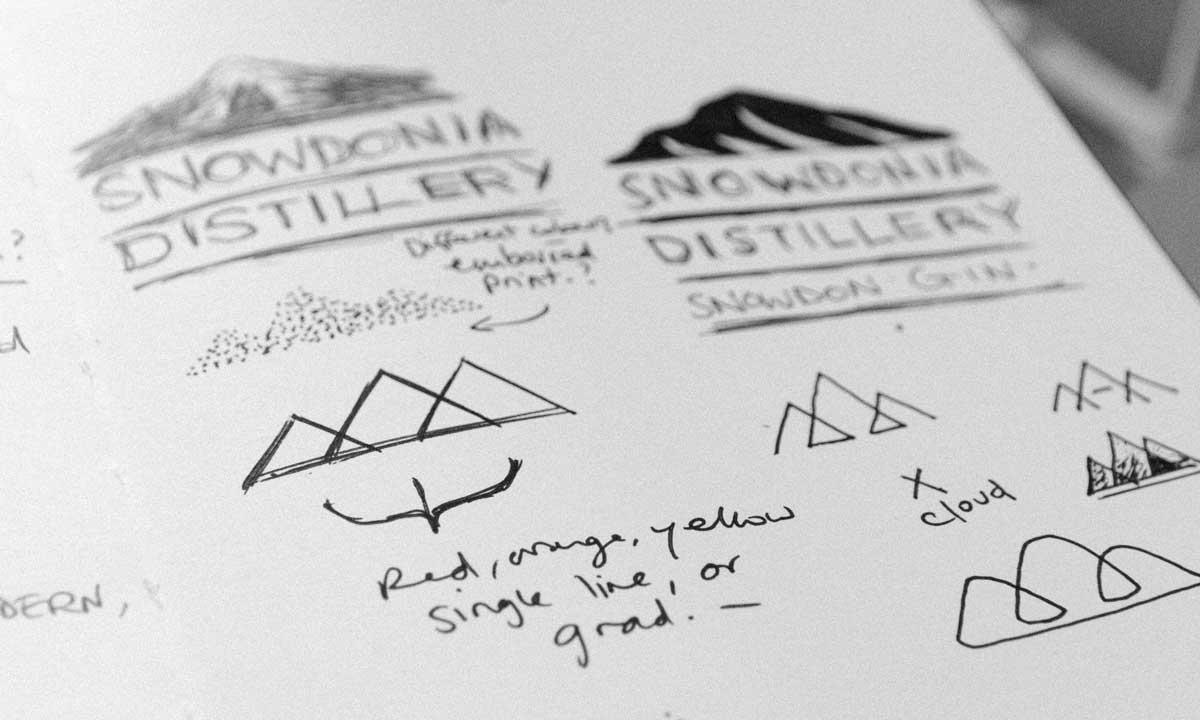 SNOWDONIA
DISTILLERY
SNOWDONIA
DISTILLERY
SNOWDON GIN.
Different
embossed
print.?
?
X
cloud
Red, orange, yellow
single line, or
grad. —
DERN,